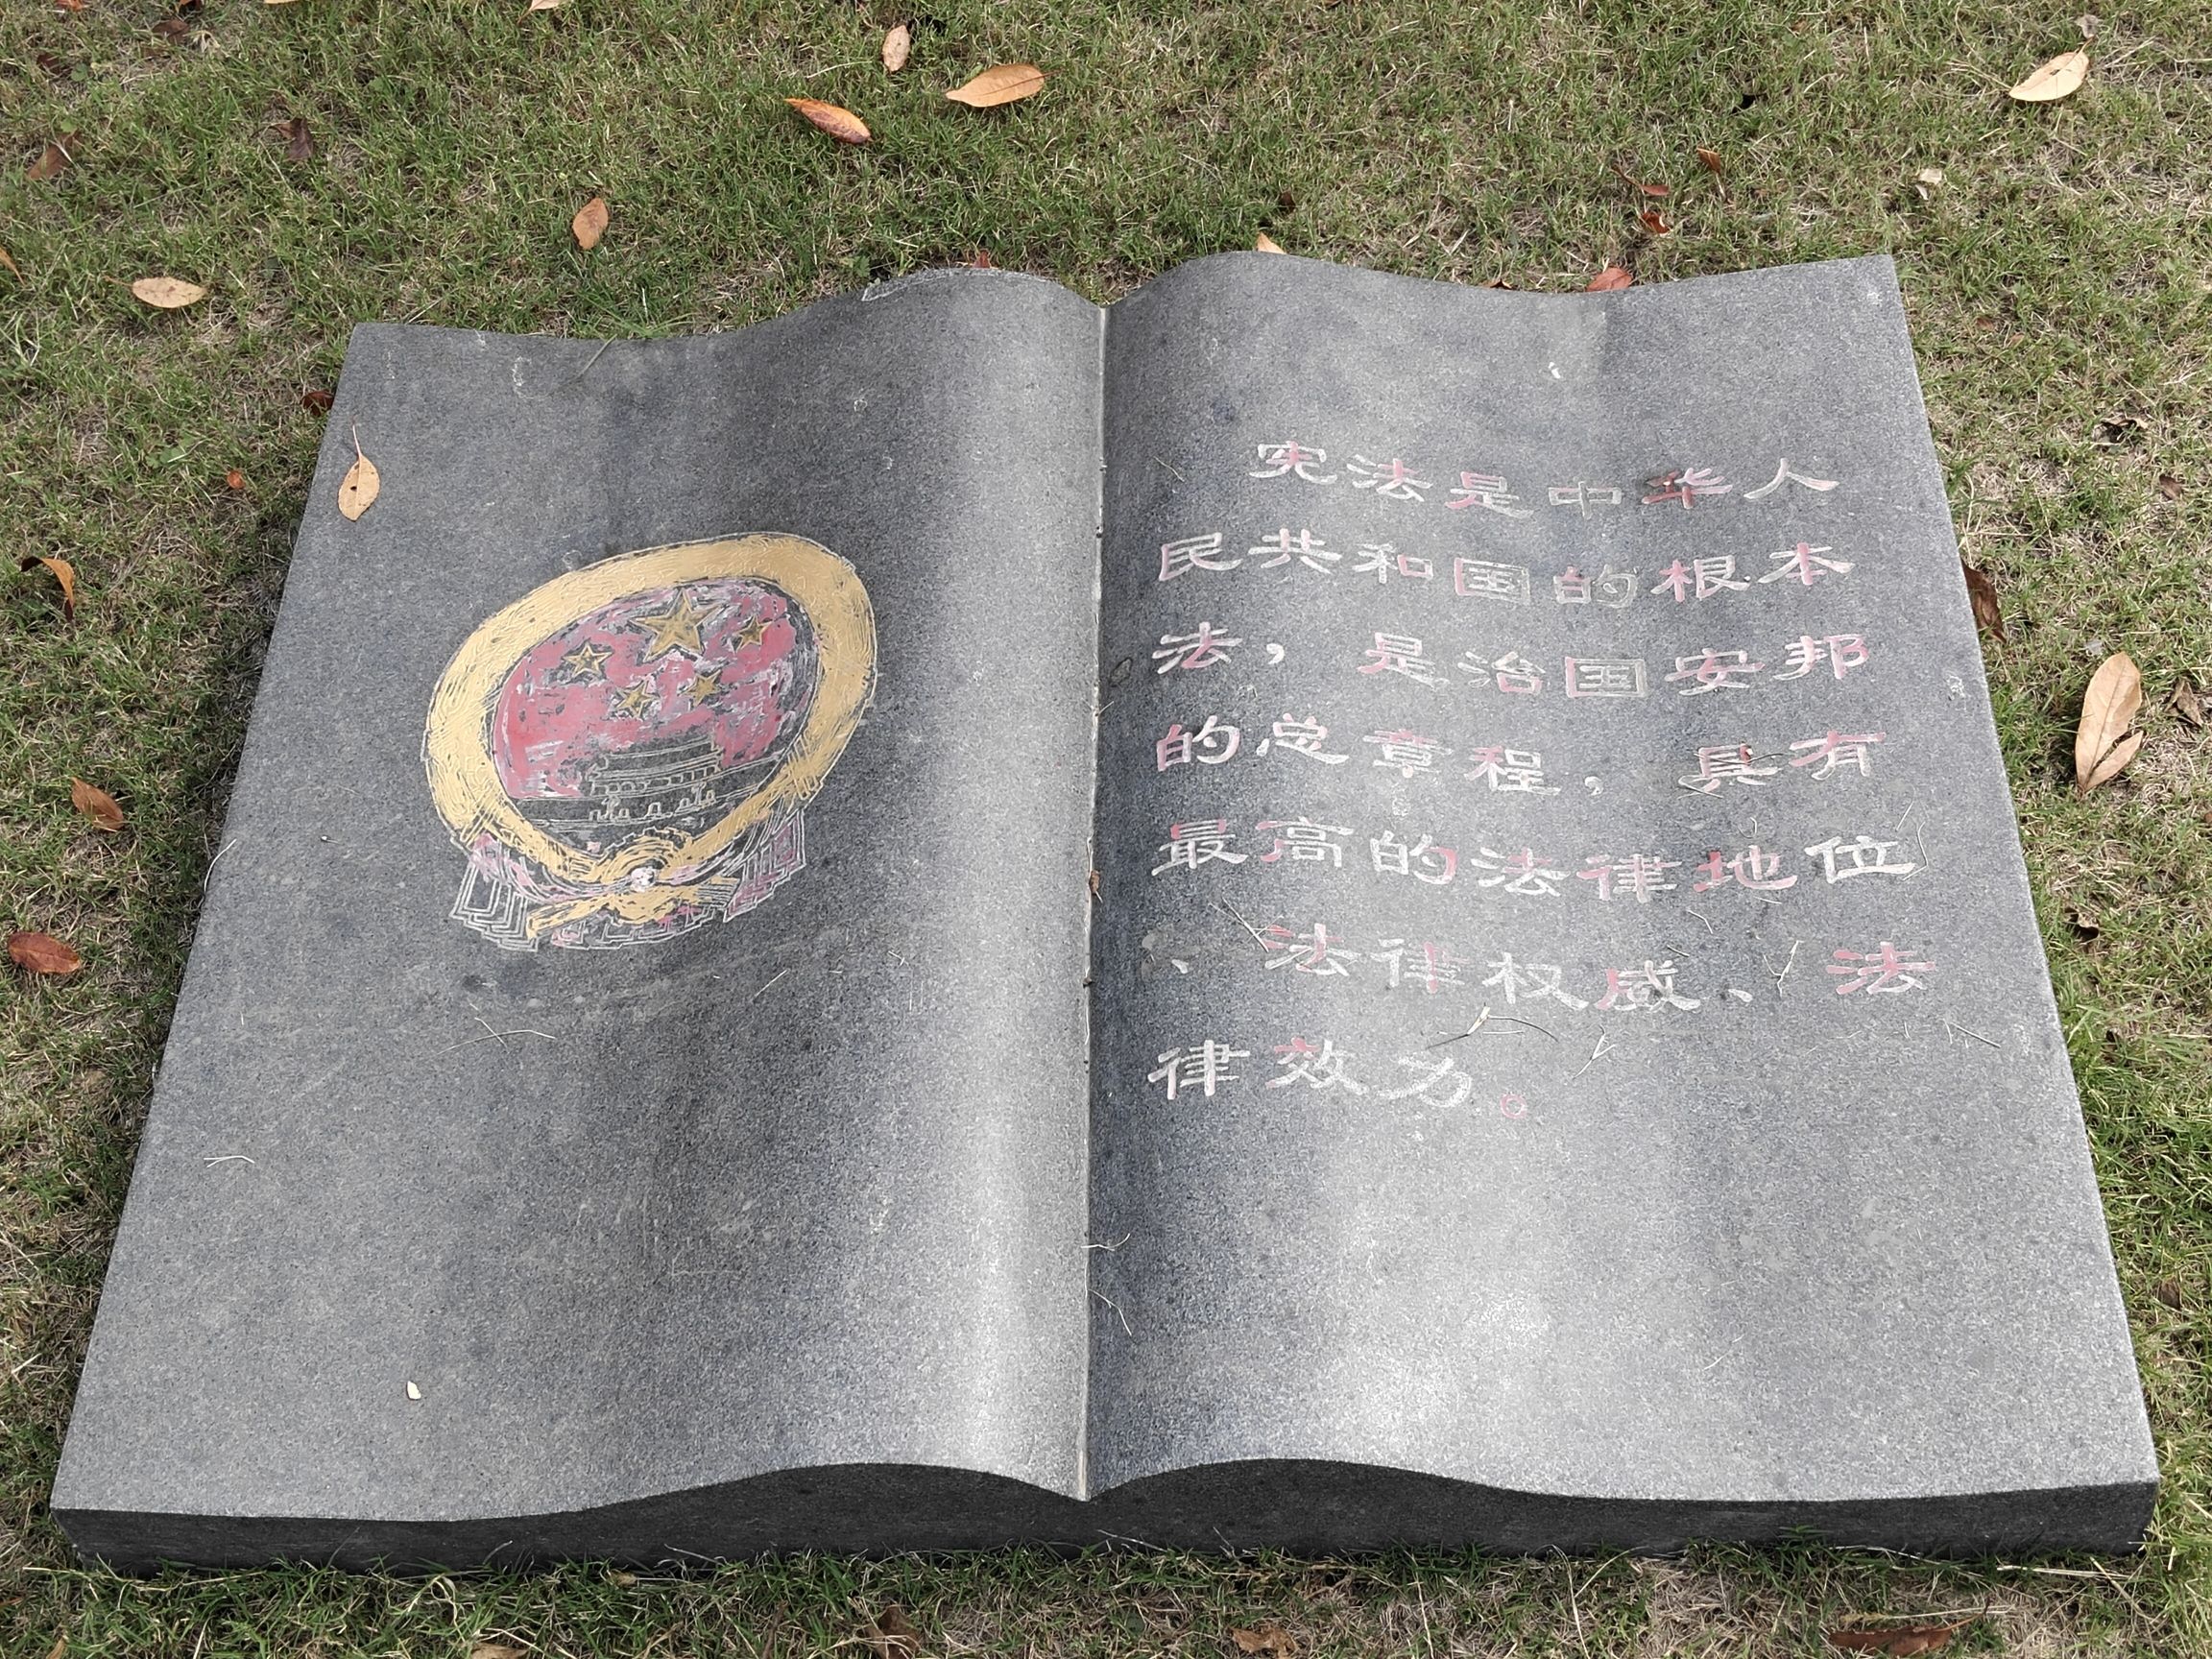 宪法是中华人
民共和国的根本
法，是治国安邦
的总章程，具有
最高的法律地位
、法律权威、法
律效力。